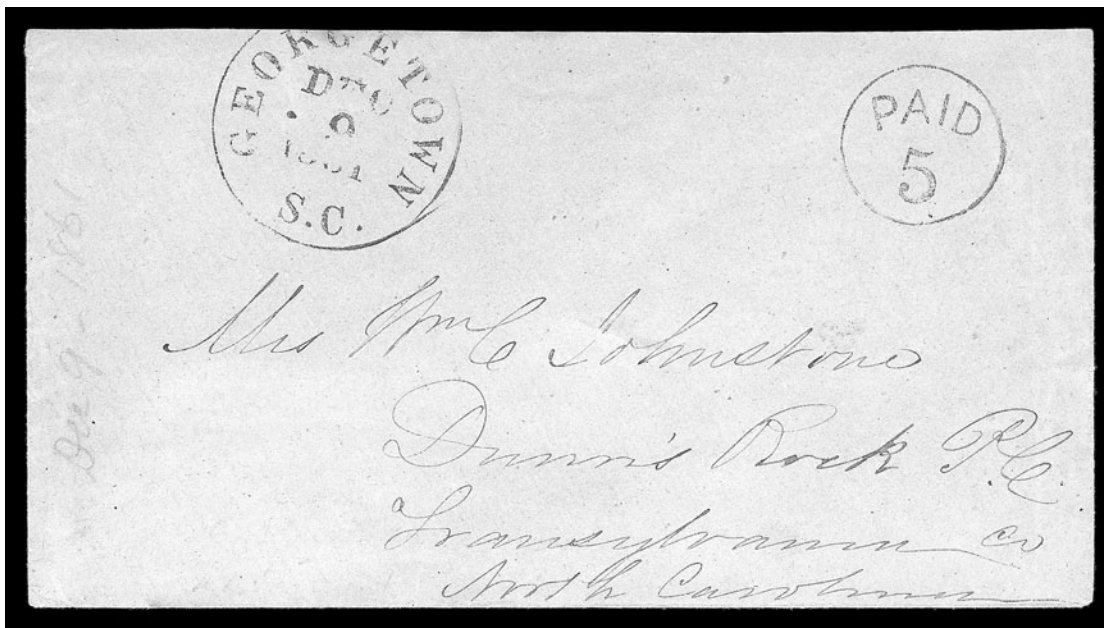 GEORGETOWN
DEC
9
1861
S.C.
PAID
5
Mrs Wm C Johnstone
Dunn's Rock P.O.
Transylvania Co
North Carolina
Dec 9 - 1861